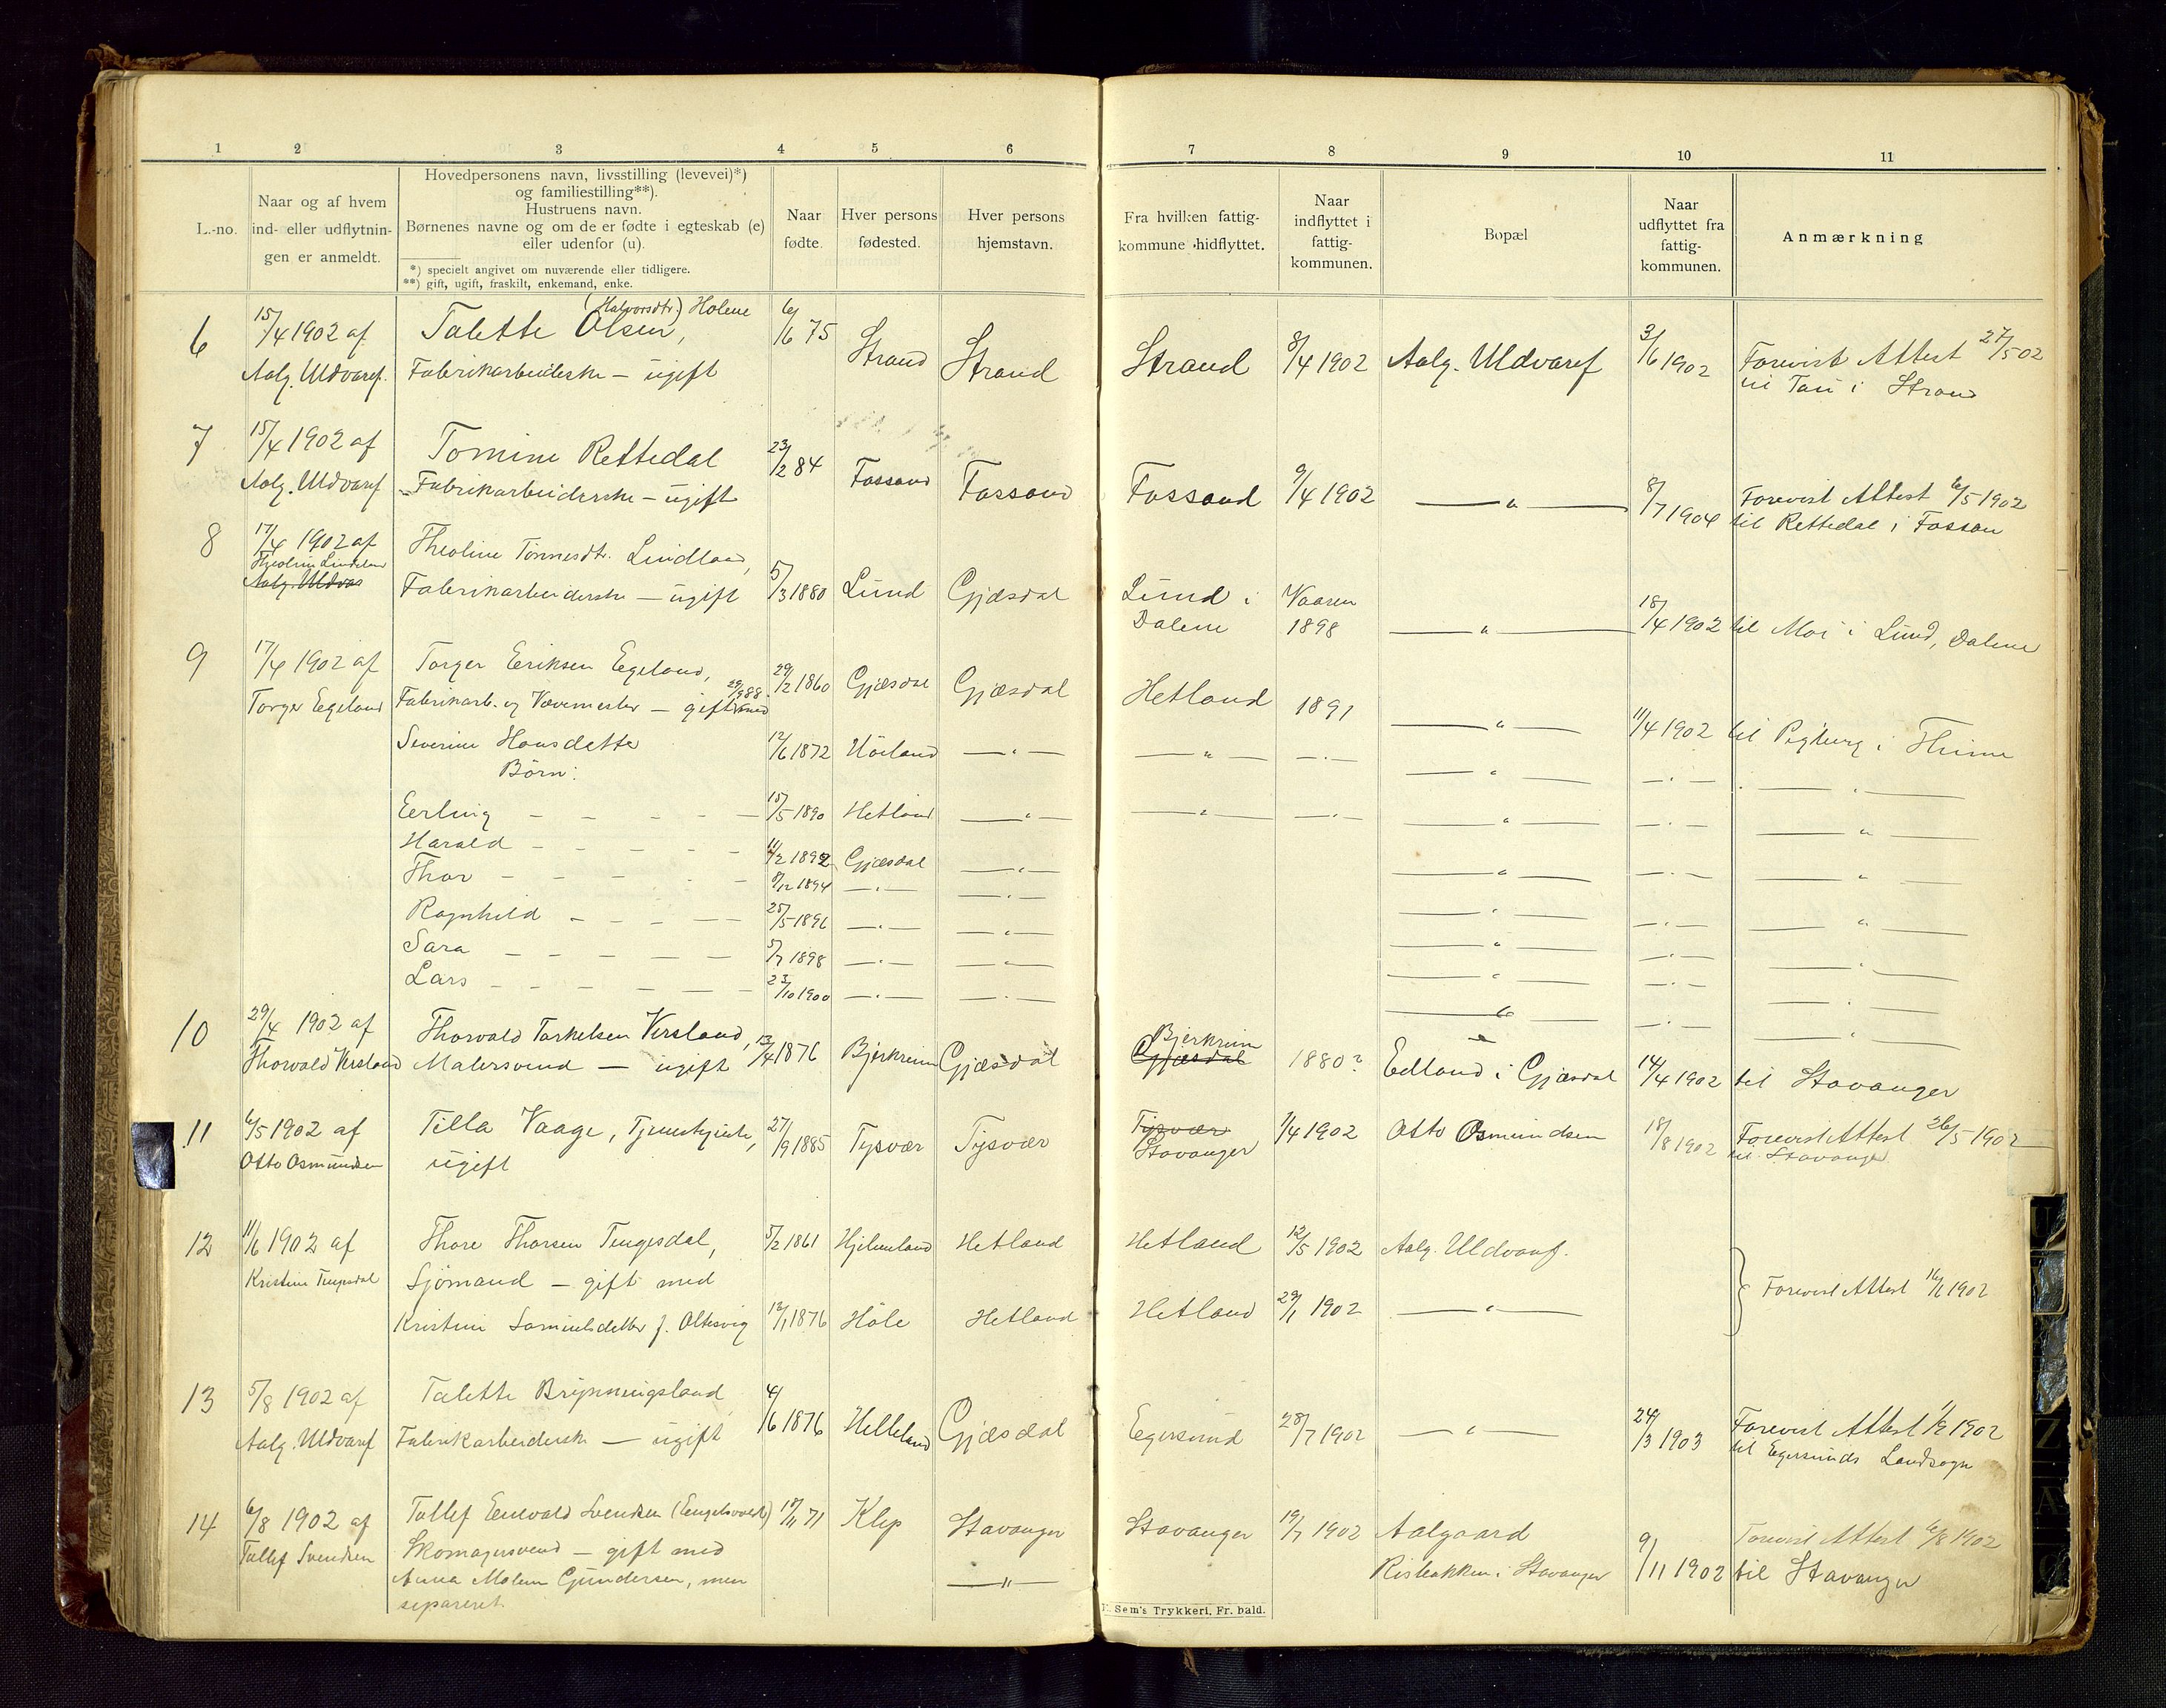 1 2 3 4 5 6 7 8 9 10 11
L.-no.
Naar og af hvem
ind- eller udflytnin-
gen er anmeldt.
Hovedpersonens navn, livsstilling (levevei)*)
og familiestilling**).
Hustruens navn.
Børnenes navne og om de er fødte i egteskab (e)
eller udenfor (u).
*) specielt angivet om nuværende eller tidligere.
**) gift, ugift, fraskilt, enkemand, enke.
Naar
fødte.
Hver persons
fødested.
Hver persons
hjemstavn.
Fra hvilken fattig-
kommune hidflyttet.
Naar
indflyttet i
fattig-
kommunen.
Bopæl
Naar
udflyttet fra
fattig-
kommunen.
Anmærkning
(Halvorsdtr.) Holene
6 15/4 1902 af Talette Olsen, 6/6 75 Strand Strand Strand 8/4 1902 Aalg. Uldvaref 3/6 1902 Forevist Attest 27/5 02
Aalg. Uldvaref. Fabrikarbeiderske – ugift til Tau i Strand
7 15/4 1902 af Tomine Rettedal 23/2 84 Fossand Fossand Fossand 9/4 1902 — " — 8/7 1904 Forevist Attest 6/5 1902
Aalg. Uldvaref Fabrikarbeiderske – ugift til Rettedal i Fossan
8 17/4 1902 af Theoline Tønnesdtr. Lindland,
Theoline Lindland
Aalg. Uldvar Fabrikarbeiderske – ugift 5/3 1880 Lund Gjæsdal Lund i Vaaren
Dalene 1898 — " — 18/4 1902 til Moi i Lund, Dalene
9 17/4 1902 af Torger Eriksen Egeland, 29/2 1860 Gjæsdal Gjæsdal Hetland 1891 — " — 11/4 1902 til i Thime
Torger Egeland Fabrikarb. og Vævemester – gift med
Severine Hansdatter 12/6 1872 — " — — " — — " — — " — — " — — " —
Børn:
Eerling – – – – – 15/5 1890 Hetland — " — — " — — " — — " — — " — — " —
Harald – – – – – 11/2 1892 Gjæsdal — " — — " — — " — — " —
Thor – – – – 8/12 1894 — " — — " — — " — — " — — " —
Ragnhild – – – – – 25/5 1896 — " — — " — — " — — " — — " —
Sara – – – – – 5/7 1898 — " — — " — — " — — " — — " —
Lars – – – – – – 23/10 1900 — " — — " — — " — — " — — " —
10 29/4 1902 af Thorvald Tarkelsen Versland, 13/4 1876 Bjerkreim Gjæsdal Bjerkreim
Gjæsdal 1880? Edland i Gjæsdal 14/4 1902 til Stavanger
Thorvald Versland Malersvend – ugift
11 6/5 1902 af Tilla Vaage, Tjenestepige, 27/9 1885 Tysvær Tysvær Tysvær 1/4 1902 Otto Osmundsen 18/8 1902 Forevist Attest 26/5 1902
Otto Osmundsen ugift Stavanger til Stavanger
12 11/6 1902 af Thore Thorsen Tengesdal, 5/2 1861 Hjelmeland Hetland Hetland 12/5 1902 Aalg. Uldvaref.
Kristine Tengesdal Sjømand – gift med Forevist Attest 1902
Kristine Samuelsdatter f. Oltesvig 12/1 1876 Høle Hetland Hetland 29/1 1902 — " —
13 5/8 1902 af Talette Brynningsland 4/6 1876 Helleland Gjæsdal Egersund 28/7 1902 — " — 24/3 1903 Forevist Attest 1902
Aalg. Uldvaref Fabrikarbeiderske – ugift til Egersunds Landsogn
14 6/8 1902 af Tallef Enevald Svendsen (Engelsvold) 71 Klep Stavanger Stavanger 19/7 1902 Aalgaard Forevist Attest 6/8 1902
Tallef Svendsen Skomagersvend – gift med Risbakken i Stavanger 9/11 1902 til Stavanger
Anna Malene Gundersen, men — " —
separeret.
Sem's Trykkeri, Fr.hald.